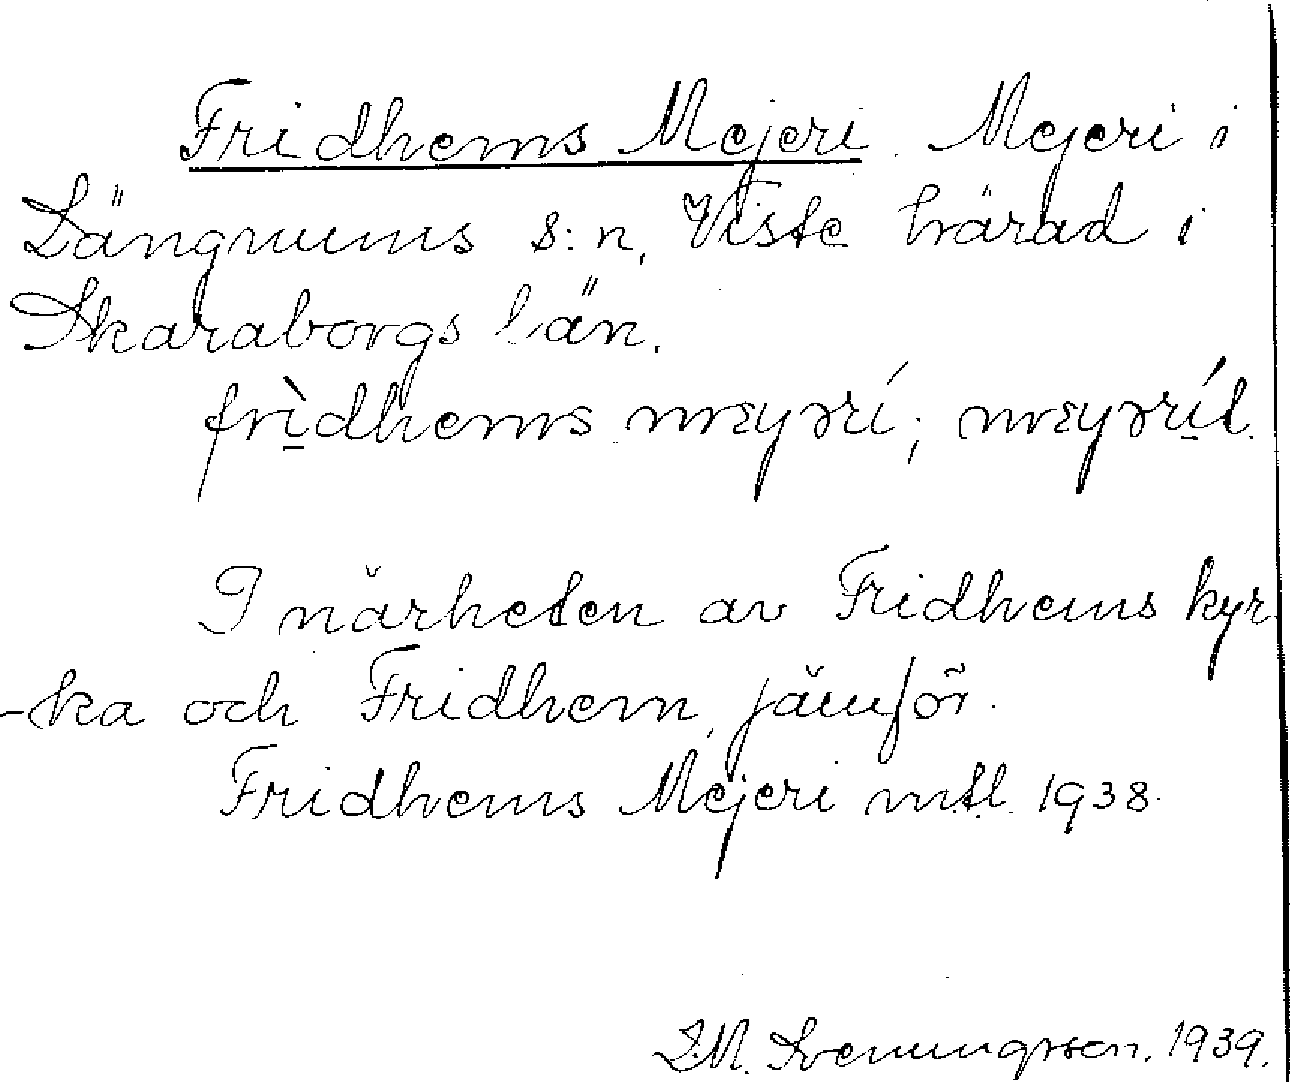 Fridhems Mejeri. Mejeri i
Längnums s:n, Viste härad i
Skaraborgs län.
frìdhems mɛyərí; mɛyərít.
I närheten av Fridhems kyr
-ka och Fridhem, jämför.
Fridhems Mejeri mtl. 1938.
I.M. Svenungsson. 1939.